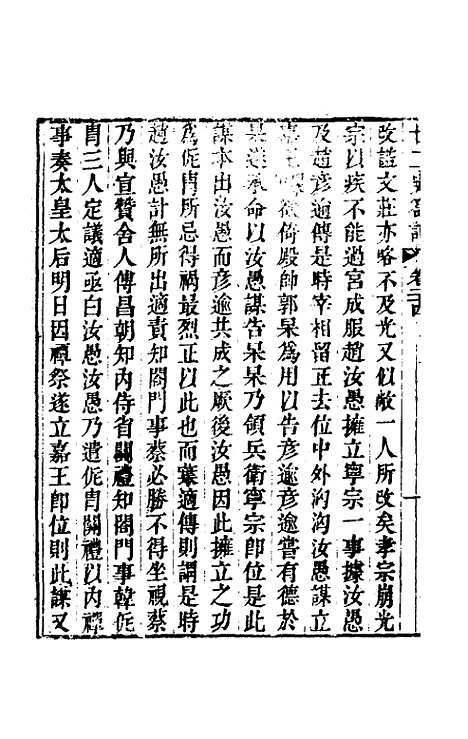 廿二史劄記 卷二十四 一
改諡文莊亦略不及光又似敵一人所改矣孝宗崩光
宗以疾不能過宮成服趙汝愚擁立寧宗一事據汝愚
及趙彥逾傳是時宰相留正去位中外洶洶汝愚謀立
嘉王 欲倚殿帥郭杲爲用以告彥逾彥逾嘗有德於
杲遂承命以汝愚謀告杲杲乃領兵衛寧宗卽位是此
謀本出汝愚而彥逾共成之厥後汝愚因此擁立之功
爲侂冑所忌得禍最烈正以此也而葉適傳則謂是時
趙汝愚計無所出適責知閤門事蔡必勝不得坐視蔡
乃與宣贊舍人傅昌朝知內侍省關禮知閤門事韓侂
冑三人定議適亟白汝愚汝愚乃遣侂冑關禮以內禪
事奏太皇太后明日因禫祭遂立嘉王卽位則此謀又